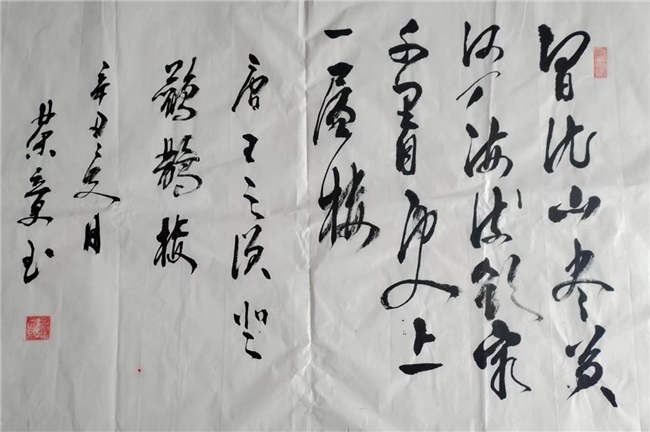 白日依山尽黄
河入海流欲穷
千里目更上
一层楼
唐王之涣登
鹳鹊楼
辛丑月
荣章书